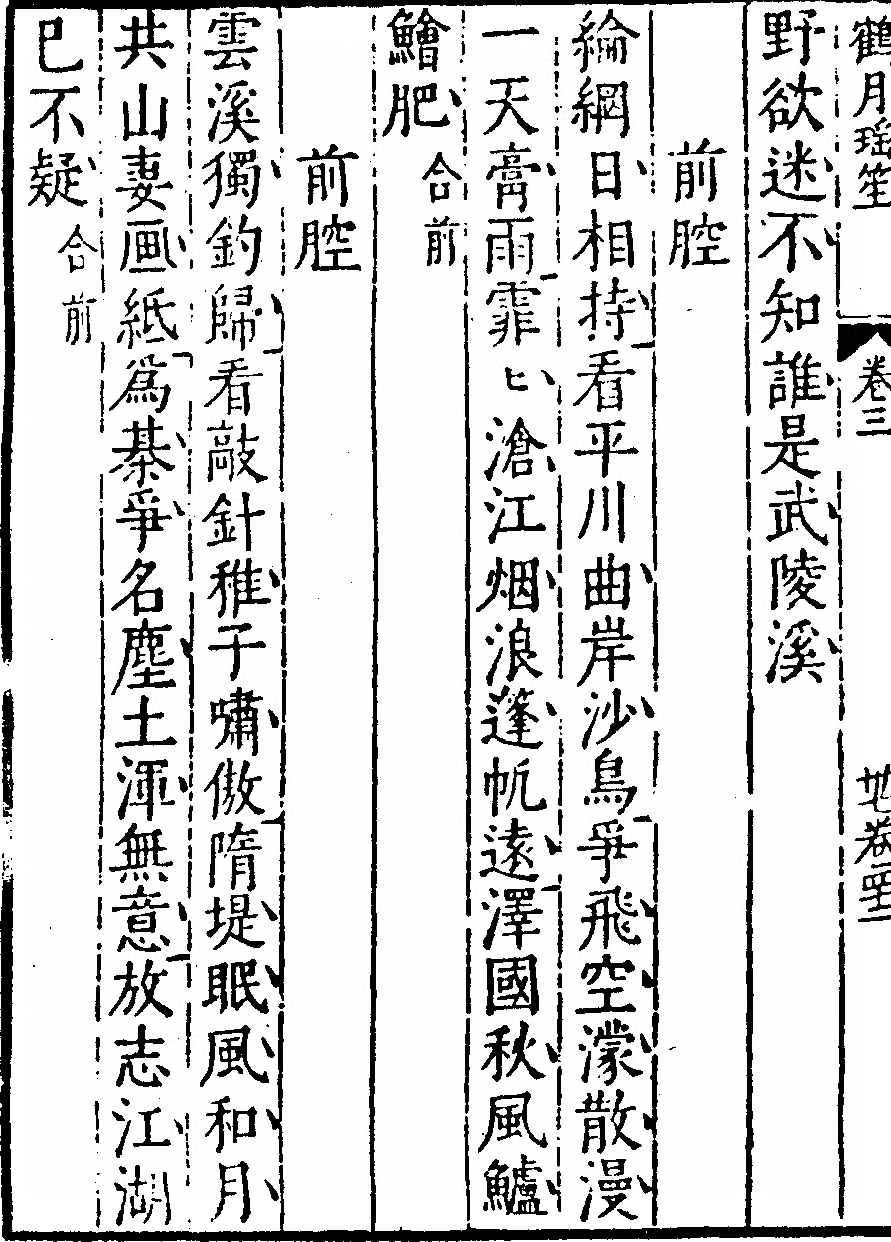 鶴月瑤笙 卷三 地卷
野欲迷不知誰是武陵溪
前腔
綸網日相持看平川曲岸沙鳥爭飛空濛散漫
一天膏雨霏〻滄江烟浪蓬帆遠澤國秋風鱸
鱠肥 合前
前腔
雲溪獨釣歸看敲針稚子嘯傲隋堤眠風和月
共山妻画紙爲棊爭名塵土渾無意放志江湖
已不疑 合前